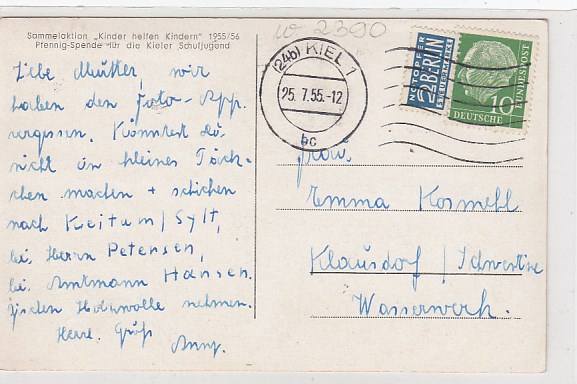 Sammelaktion „Kinder helfen Kindern" 1955/56
Pfennig-Spende für die Kieler Schuljugend
Liebe Mutter, wir
haben den Foto-App.
vergessen. Könntest Du
nicht ein kleines Päck-
chen machen + schicken
nach Keitum/Sylt,
bei Herrn Petersen,
bei Amtmann Hansen.
Holzwolle nehmen.
Herzl. Grüß
Anny.
w 2390
(24b) KIEL 1
25.7.55.-12
bc
NOTOPFER
2 BERLIN
STEUERMARKE
DEUTSCHE
BUNDESPOST
10
Frau
Emma Kosmehl
Klausdorf/Schwentine
Wasserwerk.